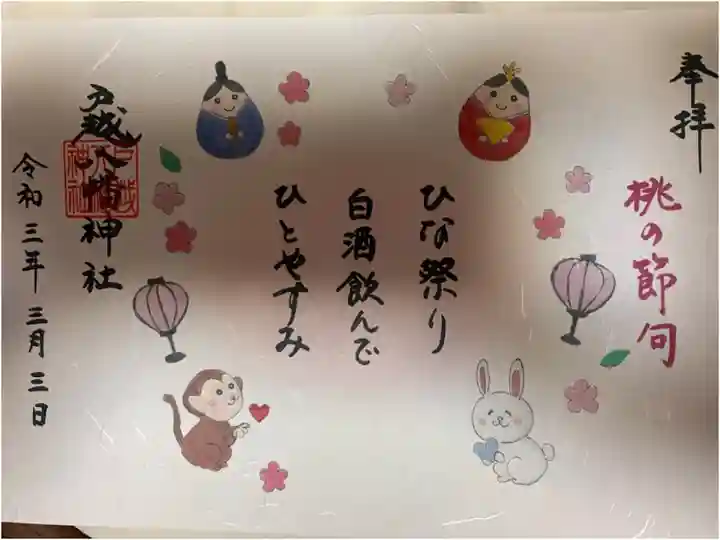 奉拝
桃の節句
ひな祭り
白酒飲んで
ひとやすみ
戸越八幡神社
令和三年三月三日